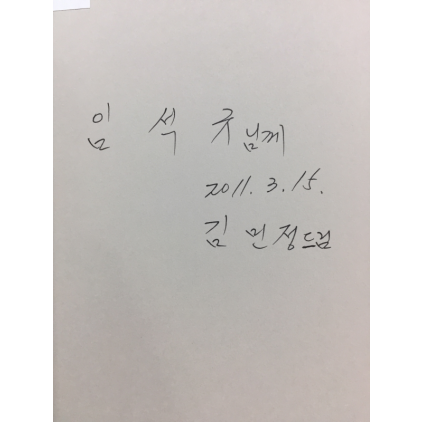 임 석 구님께
2011. 3. 15.
김 민정드림